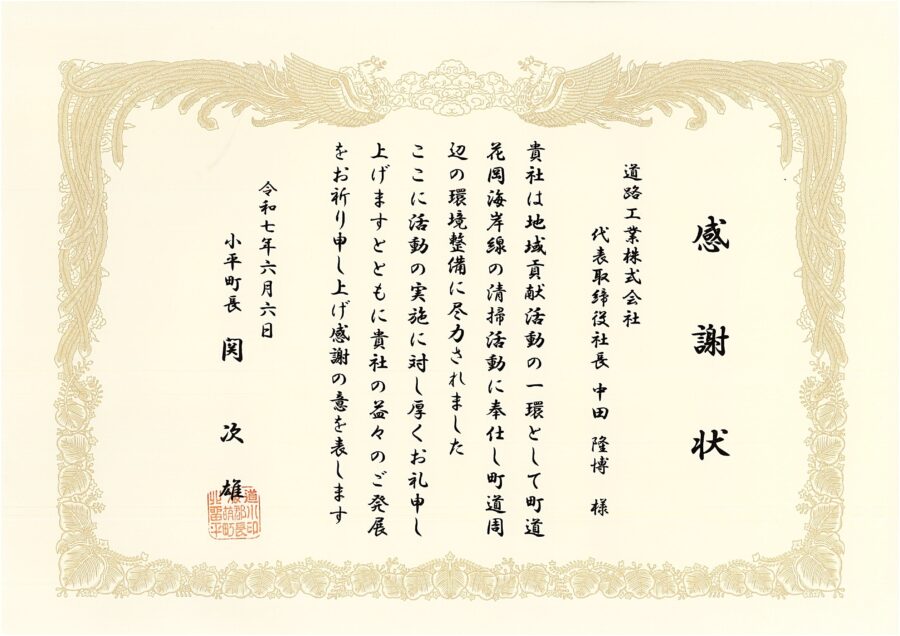 感謝状
道路工業株式会社
代表取締役社長 中田 隆博 様
貴社は地域貢献活動の一環として町道
花岡海岸線の清掃活動に奉仕し町道周
辺の環境整備に尽力されました
ここに活動の実施に対し厚くお礼申し
上げますとともに貴社の益々のご発展
をお祈り申し上げ感謝の意を表します
令和七年六月六日
小平町長 関 次 雄